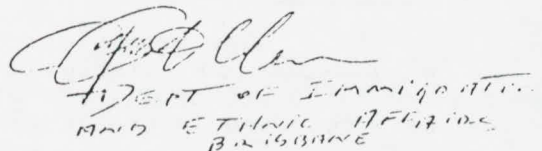 DEPT OF IMMIGRATI..
AND ETHNIC AFFAIRS
BRISBANE